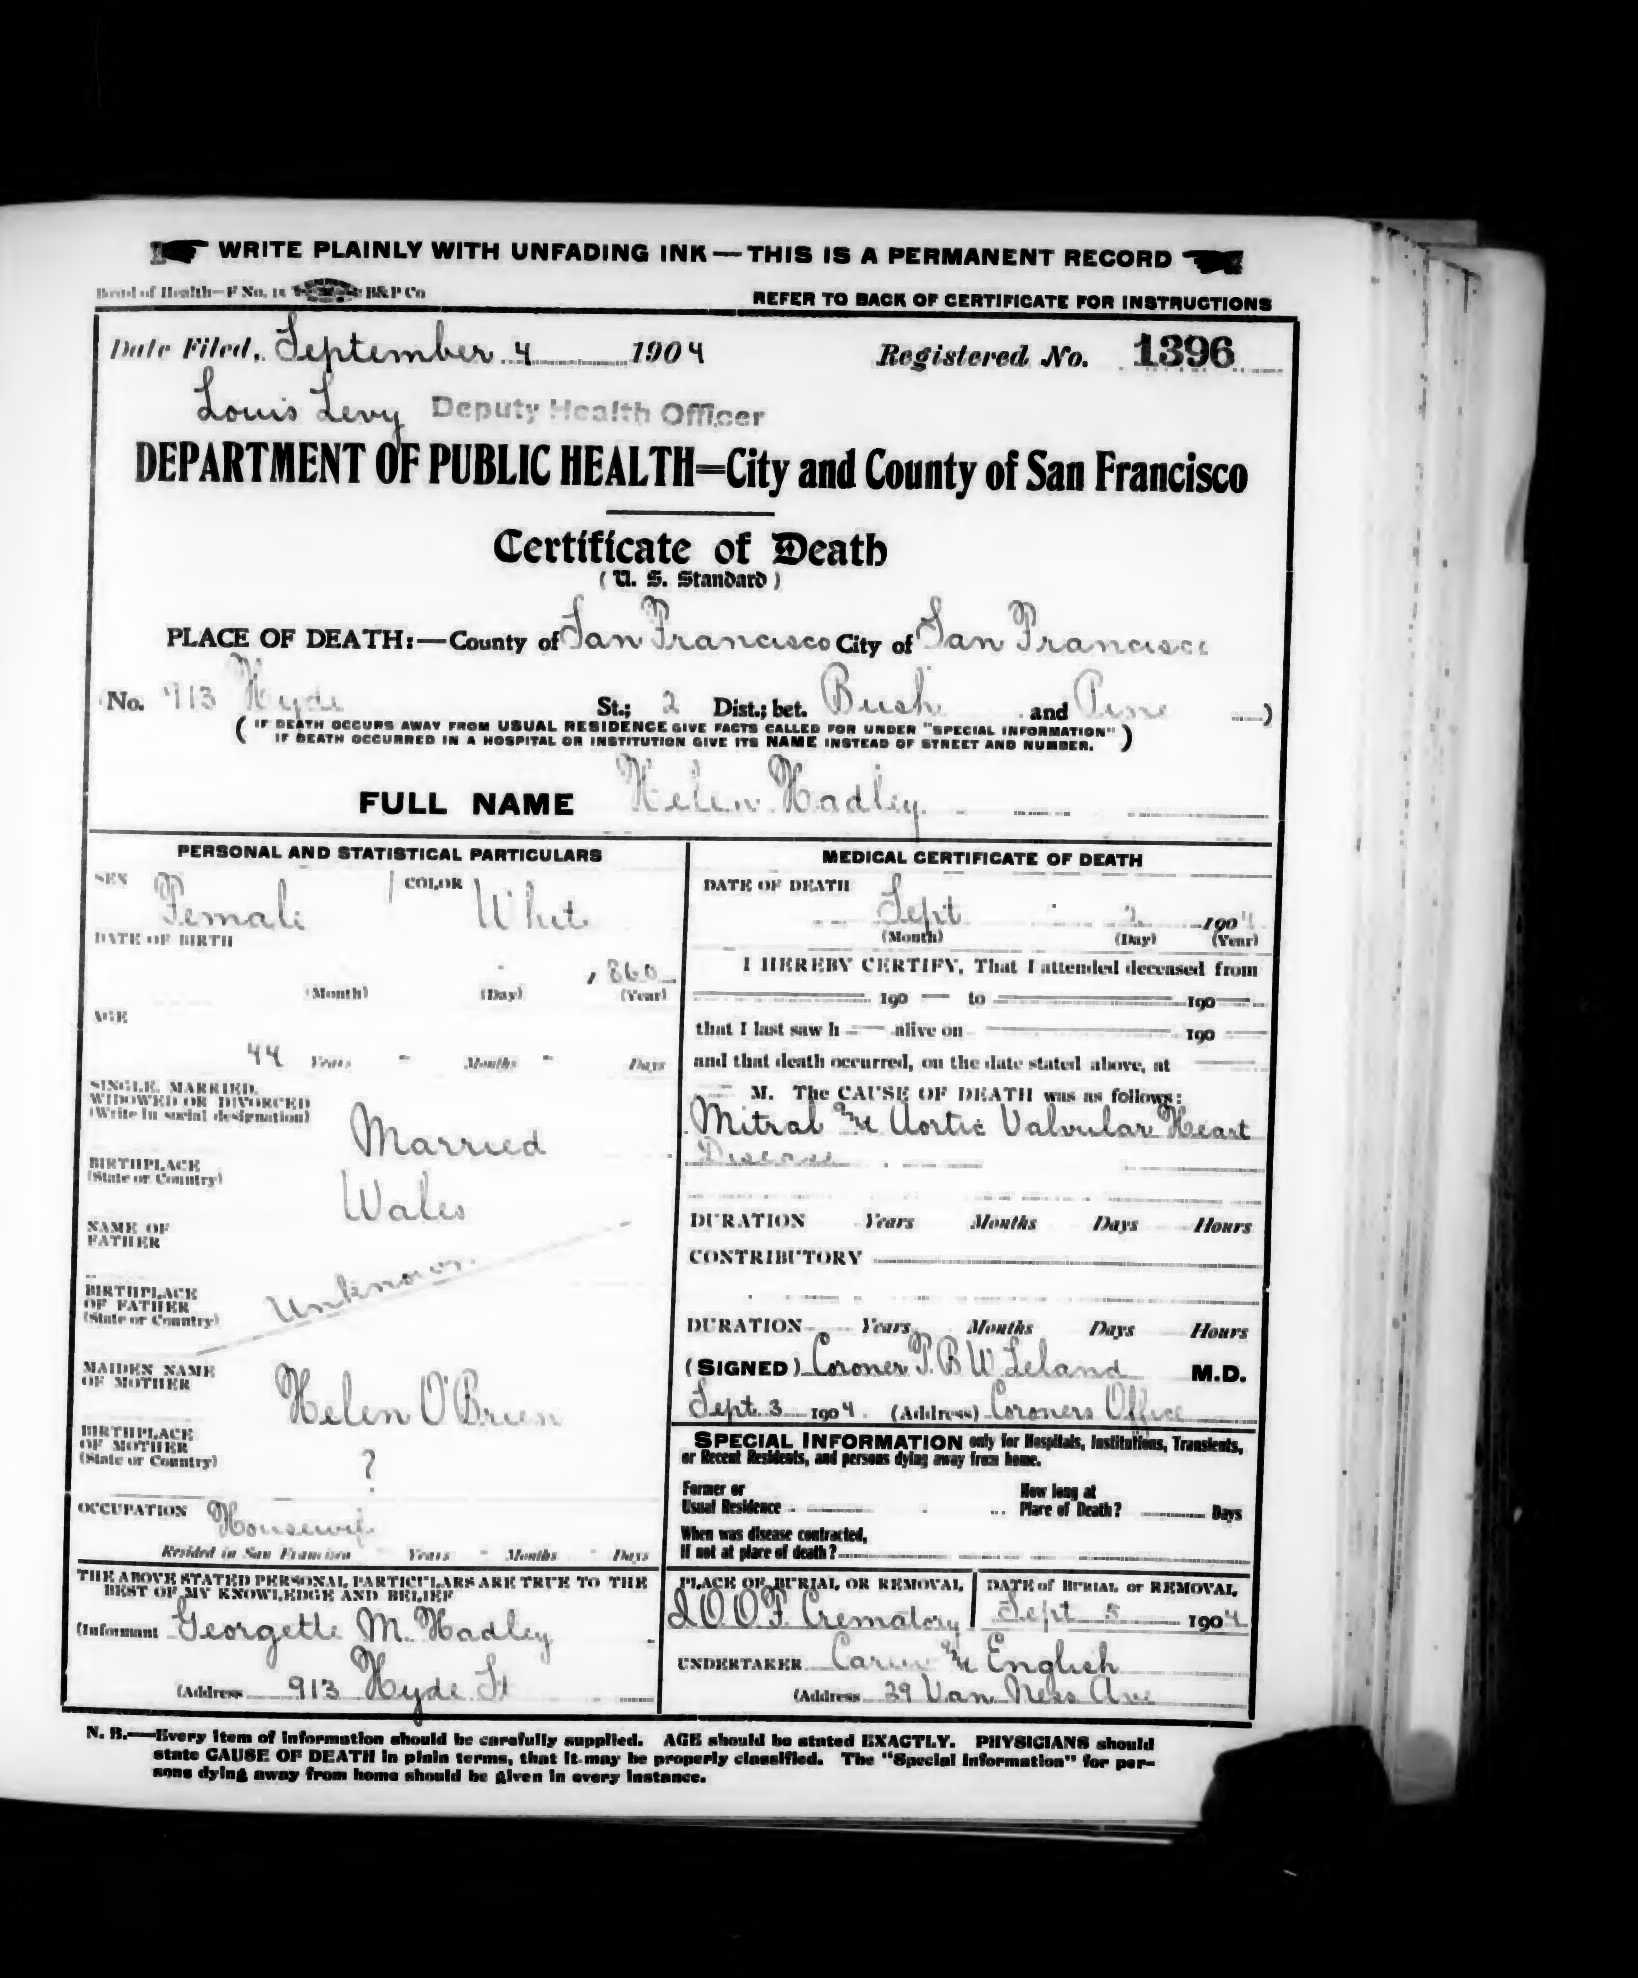 WRITE PLAINLY WITH UNFADING INK—THIS IS A PERMANENT RECORD
Board of Health—F No. 15 B&P Co
REFER TO BACK OF CERTIFICATE FOR INSTRUCTIONS
Date Filed, September 4 1904 Registered No. 1396
Louis Levy Deputy Health Officer
DEPARTMENT OF PUBLIC HEALTH=City and County of San Francisco
Certificate of Death
(U. S. Standard)
PLACE OF DEATH:—County of San Francisco City of San Francisco
No. 913 Hyde St.; 2 Dist.; bet. Bush and Pine )
(IF DEATH OCCURS AWAY FROM USUAL RESIDENCE GIVE FACTS CALLED FOR UNDER "SPECIAL INFORMATION"
IF DEATH OCCURRED IN A HOSPITAL OR INSTITUTION GIVE ITS NAME INSTEAD OF STREET AND NUMBER.)
FULL NAME Helen Hadley
PERSONAL AND STATISTICAL PARTICULARS
SEX Female COLOR White
DATE OF BIRTH
1860
(Month) (Day) (Year)
AGE
44 Years - Months - Days
SINGLE, MARRIED,
WIDOWED OR DIVORCED
(Write in social designation)
Married
BIRTHPLACE
(State or Country)
Wales
NAME OF
FATHER
BIRTHPLACE
OF FATHER
(State or Country)
Unknown
MAIDEN NAME
OF MOTHER
Helen O'Brien
BIRTHPLACE
OF MOTHER
(State or Country)
?
OCCUPATION Housewife
Resided in San Francisco - Years - Months - Days
THE ABOVE STATED PERSONAL PARTICULARS ARE TRUE TO THE
BEST OF MY KNOWLEDGE AND BELIEF
(Informant Georgette M. Hadley
(Address 913 Hyde St
MEDICAL CERTIFICATE OF DEATH
DATE OF DEATH
Sept 2 1904
(Month) (Day) (Year)
I HEREBY CERTIFY, That I attended deceased from
190 — to — 190 —
that I last saw h — alive on — 190 —
and that death occurred, on the date stated above, at —
— M. The CAUSE OF DEATH was as follows:
Mitral and Aortic Valvular Heart
Disease
DURATION Years Months Days Hours
CONTRIBUTORY
DURATION Years Months Days Hours
(SIGNED) Coroner T. B W Leland M.D.
Sept 3 1904 (Address) Coroners Office
SPECIAL INFORMATION only for Hospitals, Institutions, Transients,
or Recent Residents, and persons dying away from home.
Former or
Usual Residence
How long at
Place of Death? Days
When was disease contracted,
If not at place of death?
PLACE OF BURIAL OR REMOVAL
I O O F Crematory
DATE of BURIAL or REMOVAL
Sept 5 1904
UNDERTAKER Carew and English
(Address 29 Van Ness Ave
N. B.—Every item of information should be carefully supplied. AGE should be stated EXACTLY. PHYSICIANS should
state CAUSE OF DEATH in plain terms, that it may be properly classified. The "Special Information" for per-
sons dying away from home should be given in every instance.